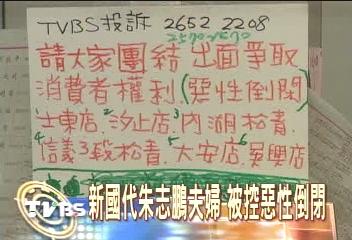 TVBS投訴 2652 2208
請大家團結出面爭取
消費者權利(惡性倒閉)
1士東店2汐止店3內湖松青
4信義3段松青5大安店6吳興店
TVBS 新國代朱志鵬夫婦 被控惡性倒閉